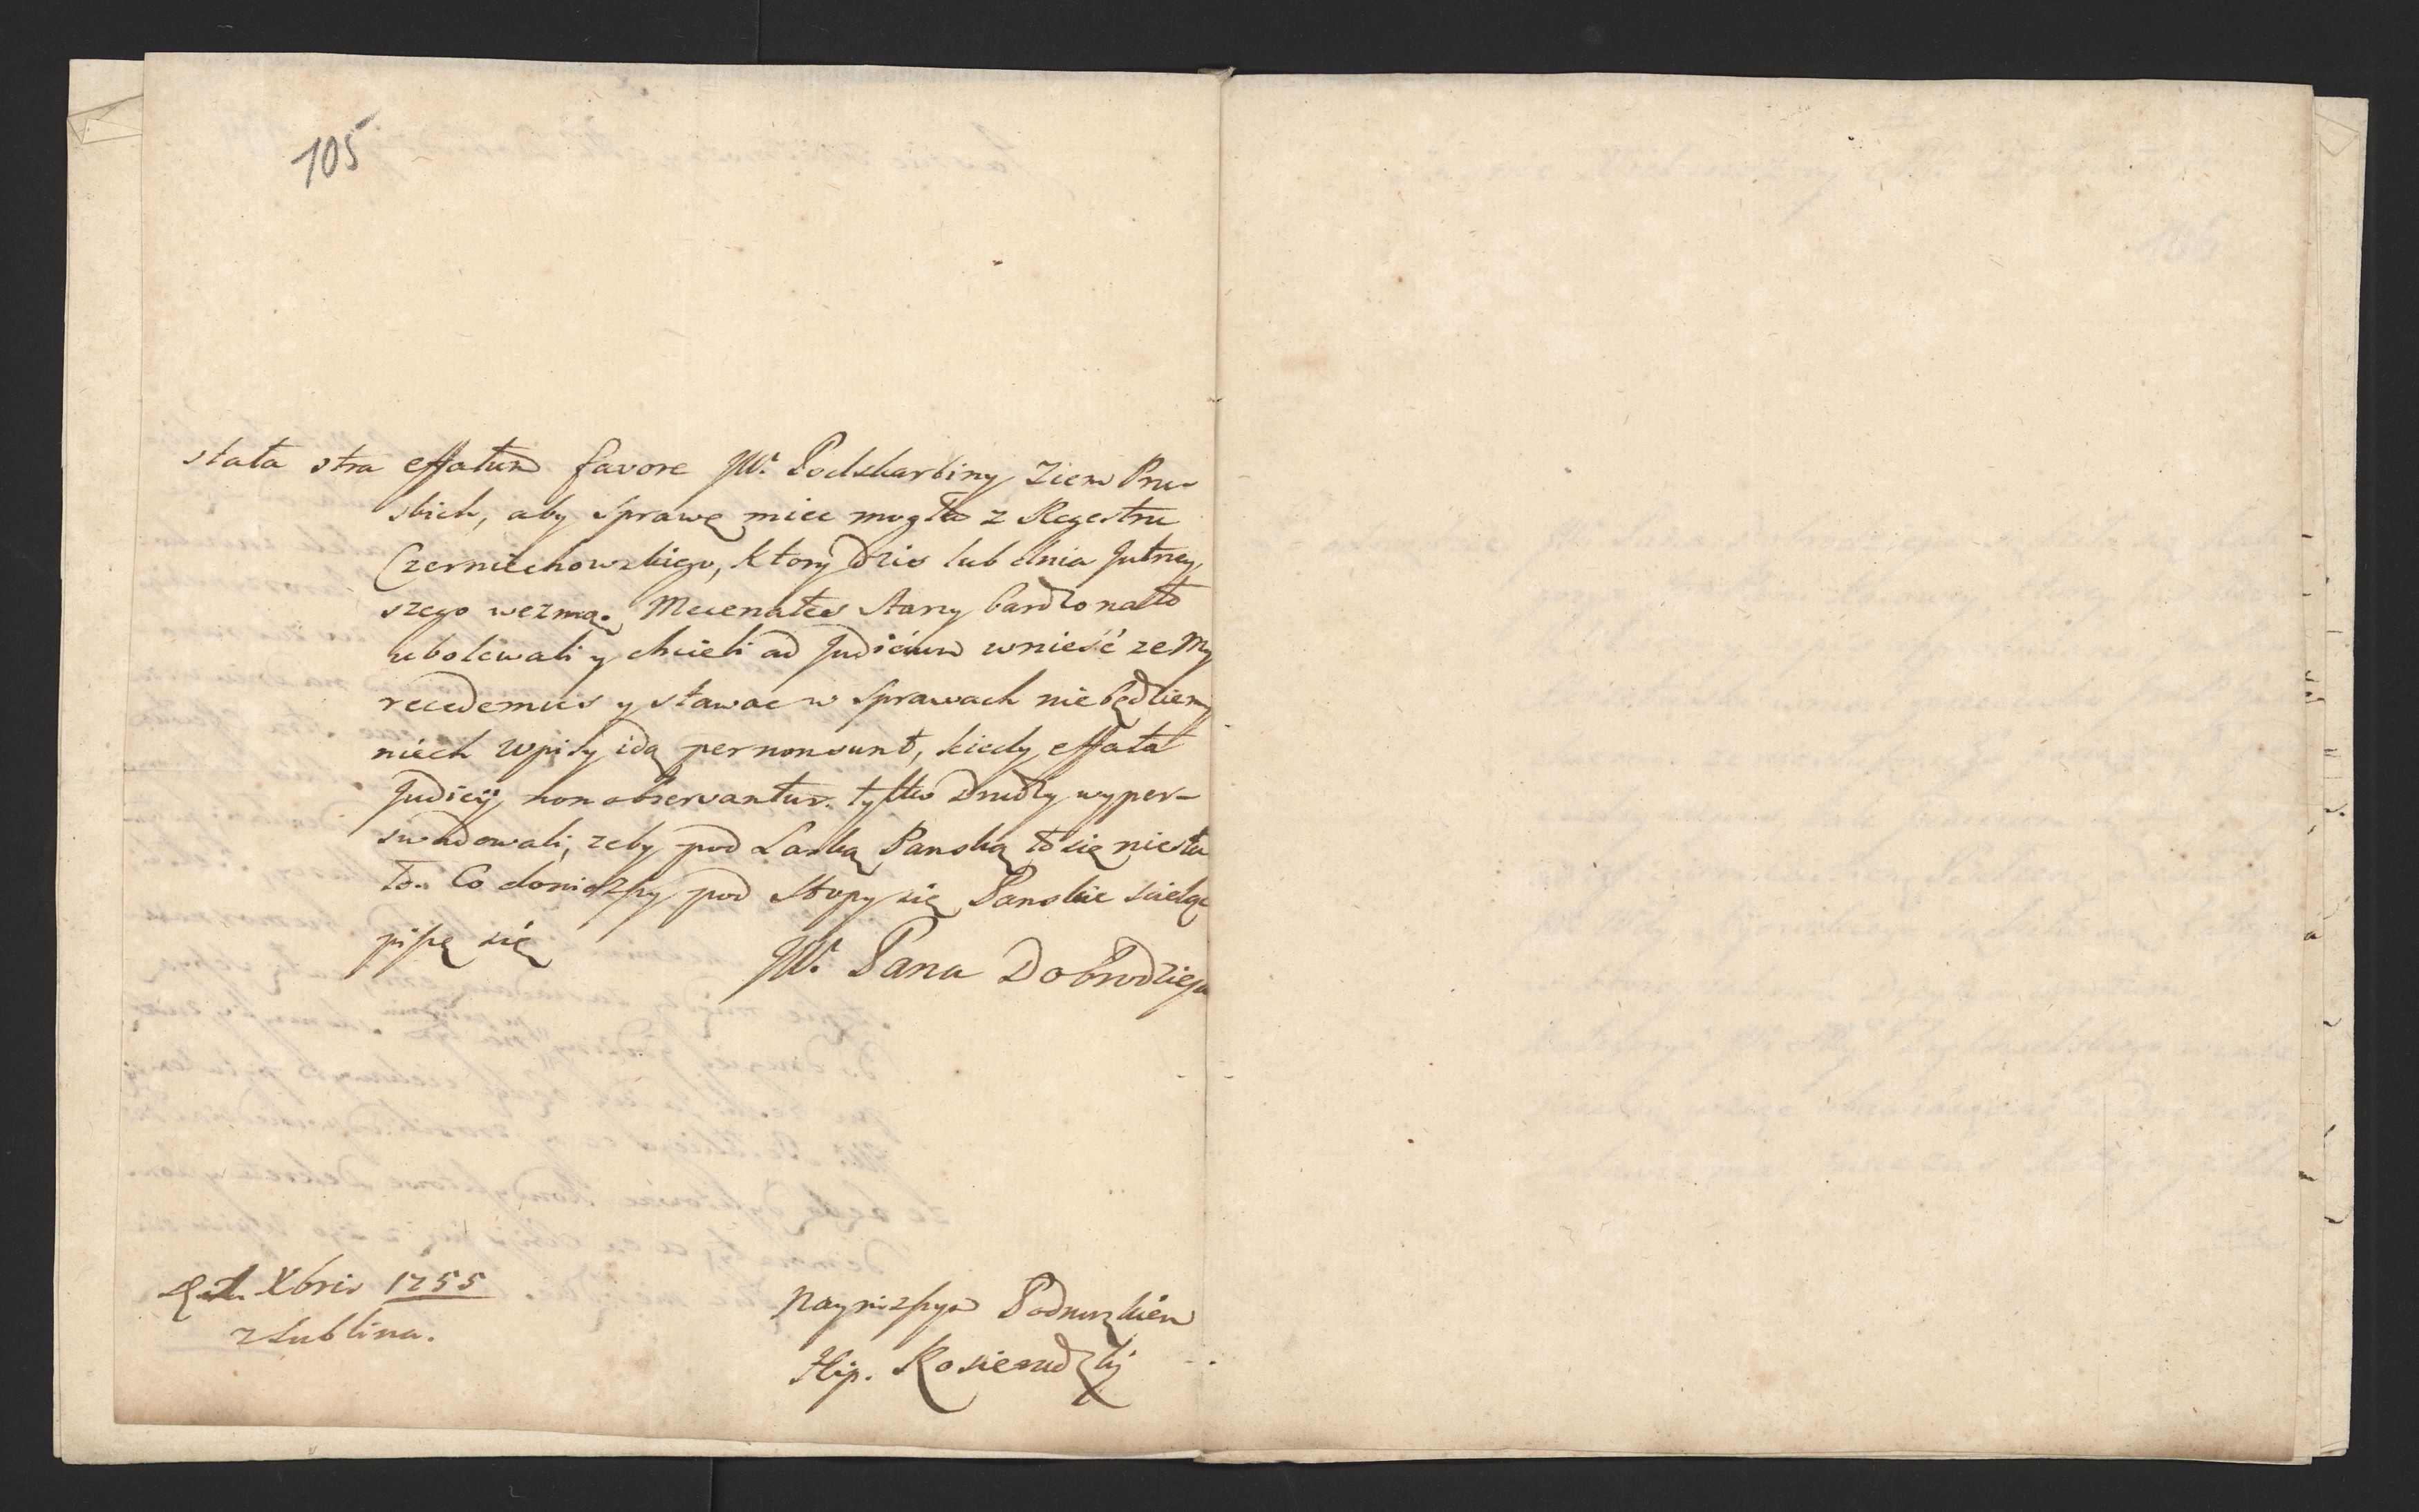 105
stała stra effatum favore JW. Podskarbiny Ziem Pru-
skich, aby sprawę miec mogła z Regestru
Czerniechowskiego, ktory dzis lub dnia Jutrzey,
szego wezmą. Mecenates starzy bardzo na to
ubolewali y chcieli ad Judicium wnieść ze My
recedemus y stawac w sprawach nie będziemy
niech Wpisy idą per non sunt, kiedy effata
Judicij non observantur. tylko drudzy wyper-
swadowali, zeby pod Laską Panską to się niesta
ło. Co doniozszy pod stopy się Panskie scieląc
piszę się
JW. Pana Dobrodzieja
Xbris 1755
z Lublina.
Nayniższym Podnużkiem
Hip. Kosieradzkj